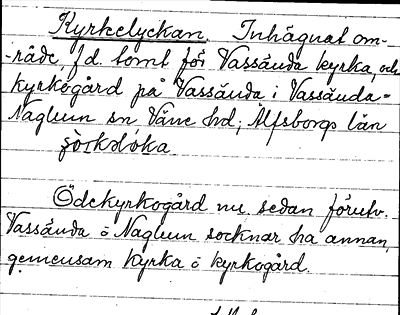 Kyrkelyckan. Inhägnat om-
-råde, f.d. tomt för Vassända kyrka, och
kyrkogård på Vassända i Vassända=
Naglum sn Väne hd; Älfsborgs län
Ödekyrkogård nu, sedan förutv.
Vassända o Naglum socknar ha annan,
gemensam kyrka o kyrkogård.